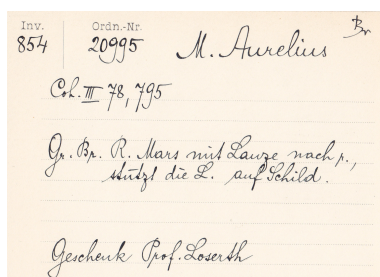 Inv. Ordn.-Nr. Br
854 20995 M. Aurelius
Coh. III 78, 795
Gr. Br. R. Mars mit Lanze nach r.,
stützt die L. auf Schild.
Geschenk Prof. Loserth